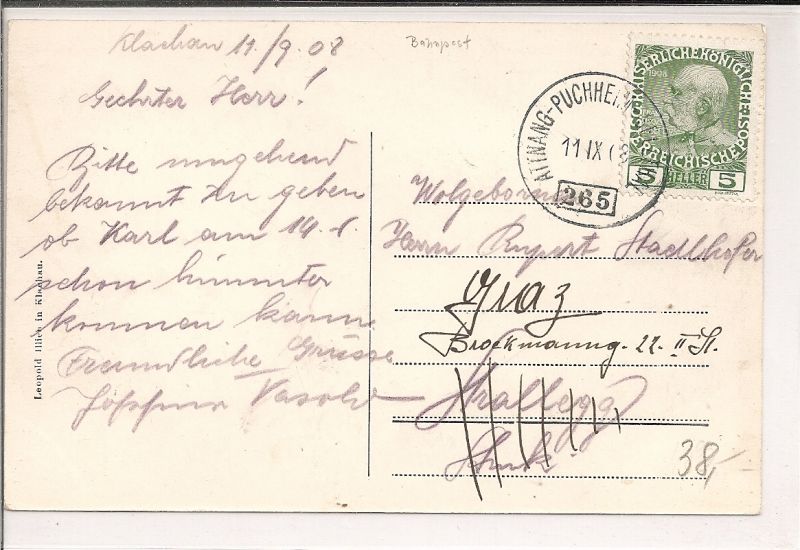 Klachau 11/9.08
Bahnpost
Geehrter Herr!
Bitte umgehend
bekannt zu geben
ob Karl am 14.
schon hinunter
kommen kann
Freundliche Grüsse
Vasold
Leopold Illich in Klachau.
ATTNANG-PUCHHEIM
11 IX
265
KAISERLICHE KÖNIGLICHE
ÖSTERREICHISCHE
1908
5 HELLER 5
Wolgeboren
Herrn Rupert Stadlhofer
Graz
Brockmanng. 22. II St.
Strallegg
38,-